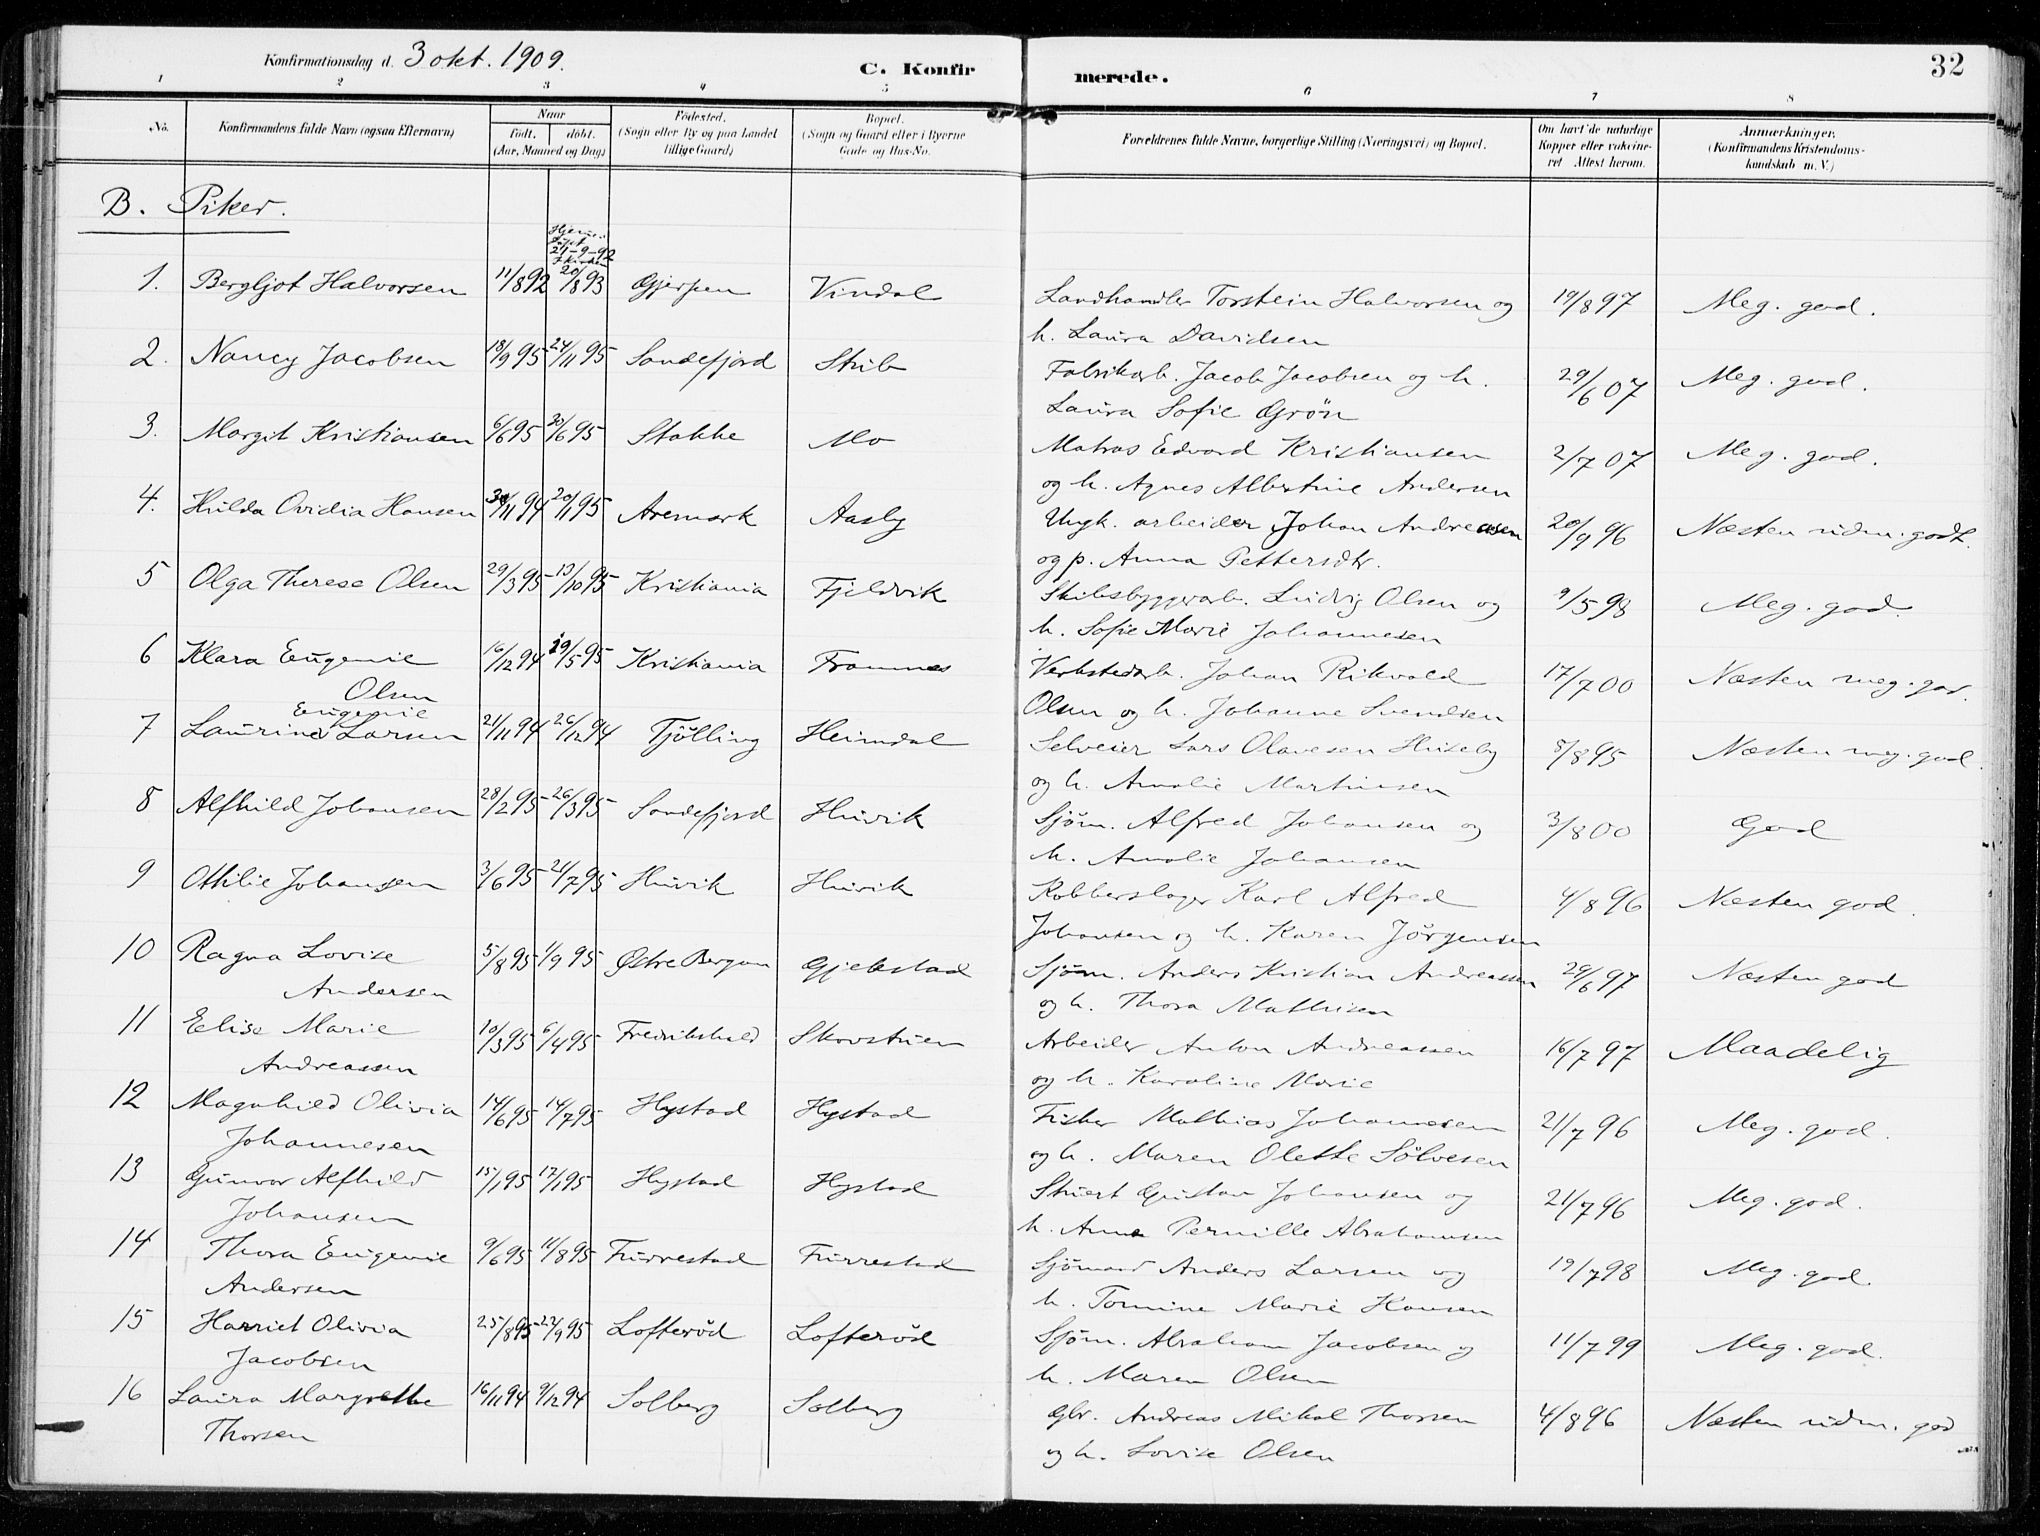 Konfirmationsdag d. 3 okt. 1909.
C. Konfirmerede.
32
1 2 3 4 5 6 7 8
No.
Konfirmandens fulde Navn (ogsaa Efternavn)
Naar
født. døbt.
(Aar, Maaned og Dag)
Fødested.
(Sogn eller By og paa Landet
tillige Gaard)
Bopæl.
(Sogn og Gaard eller i Byerne
Gade og Hus-No.
Forældrenes fulde Navne, borgerlige Stilling (Næringsvei) og Bopæl.
Om havt de naturlige
Kopper eller vakcine-
ret Attest herom.
Anmærkninger.
(Konfirmandens Kristendoms-
kundskab m. V.)
B. Piker.
Hjemme
døbt
21-9-92
I kirken
1. Bergljot Halvorsen 11/8 92 20/8 93 Gjerpen Vindal Landhandler Torstein Halvorsen og 19/8 97 Meg. god.
h. Laura Davidsen
2. Nancy Jacobsen 18/9 95 24/11 95 Sandefjord Skib Fabrikarb. Jacob Jacobsen og h. 29/6 07 Meg. god.
Laura Sofie Grön
3. Margit Kristiansen 6/6 95 20/6 95 Stokke Mo Matros Edvard Kristiansen 2/7 07 Meg. god.
og h. Agnes Albertine Andersen
4. Hulda Ovidia Hansen 30/11 94 20/1 95 Aremark Aasly Ungk. arbeider Johan Andreasen 20/9 96 Næsten udm. godt.
og p. Anna Pettersdtr.
5 Olga Therese Olsen 29/3 95 13/10 95 Kristiania Fjeldvik Skibsbyggerarb. Ludvig Olsen og 9/5 98 Meg. god.
h. Sofie Marie Johannesen
6 Klara Eugenie 16/12 94 19/5 95 Kristiania Framnes Verkstedarb. Johan Rikvald 17/7 00 Næsten meg. god.
Olsen Olsen og h. Johanne Svendsen
Eugenie
7 Laurine Larsen 21/11 94 26/12 94 Tjölling Heimdal Selveier Lars Olavesen Huseby 8/8 95 Næsten meg. god.
og h. Amalie Martinsen
8 Alfhild Johansen 28/2 95 26/3 95 Sandefjord Huvik Sjøm. Alfred Johansen og 3/8 00 God
h. Amalie Johansen
9 Othilie Johansen 3/6 95 21/7 95 Huvik Huvik Kobberslager Karl Alfred 4/8 96 Næsten god.
Johansen og h. Karen Jörgensen
10 Ragna Lovise 5/8 95 1/9 95 Østre Bergan Gjekstad Sjøm. Anders Kristian Andreassen 29/6 97 Næsten god
Andersen og h. Thora Mathisen
11 Elise Marie 10/3 95 6/4 95 Fredrikshald Skovstuen Arbeider Anton Andreassen 16/7 97 Maadelig
Andreassen og h. Karoline Marie
12 Magnhild Olivia 14/6 95 14/7 95 Hystad Hystad Fisker Mathias Johannesen 21/7 96 Meg. god.
Johannesen og h. Maren Olette Sølvesen
13 Gunvor Alfhild 15/1 95 17/1 95 Hystad Hystad Stuert Gustav Johansen og 21/7 96 Meg. god.
Johansen h. Anna Pernille Abrahamsen
14 Thora Eugenie 9/6 95 11/8 95 Furrestad Furrestad Sjømand Anders Larsen og 19/7 98 Meg. god.
Andersen h. Tomine Marie Hansen
15 Harriet Olivia 25/8 95 22/9 95 Lofterød Lofterød Sjøm. Abraham Jacobsen og 11/7 99 Meg. god.
Jacobsen h. Maren Olsen
16 Laura Margrethe 16/11 94 9/12 94 Solberg Solberg Gbr. Andreas Mikal Thorsen 4/8 96 Næsten udm. god
Thorsen og h. Lovise Olsen